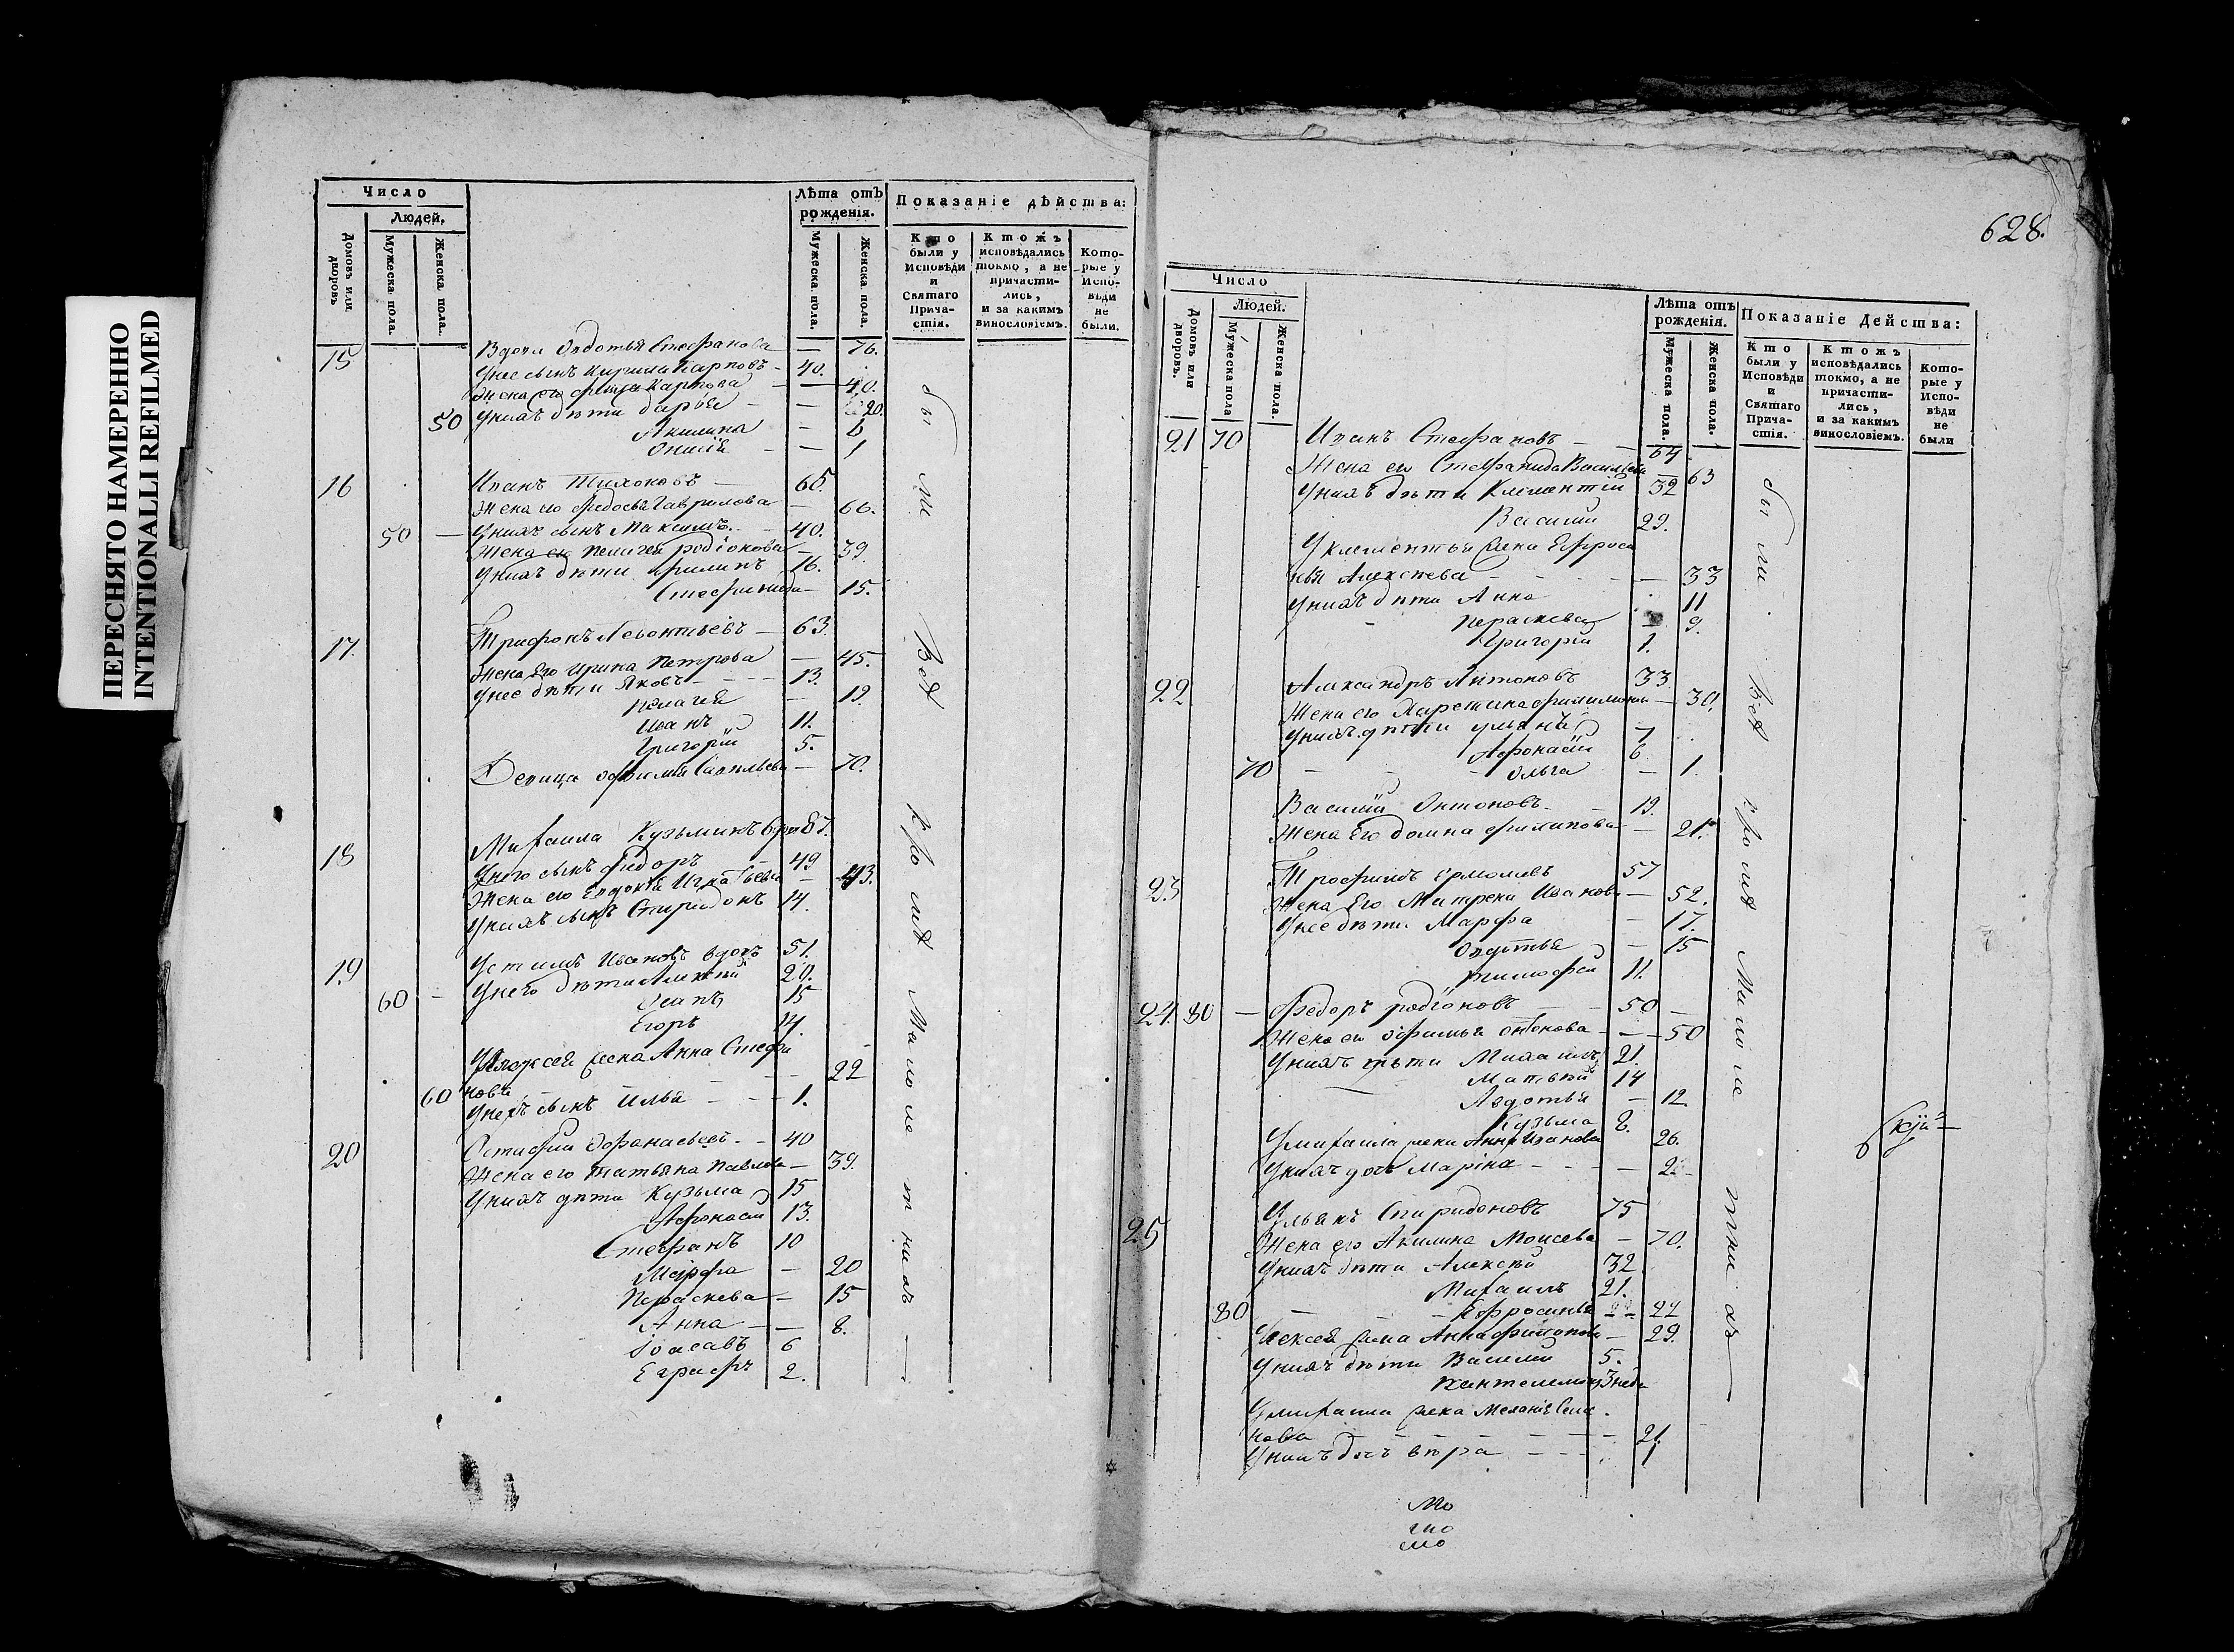 ПЕРЕСНЯТО НАМЕРЕННО
INTENTIONALLI REFILMED
Число
Людей.
Домовъ или дворовъ
Мужеска пола.
Женска пола.
Лѣта отъ рожденія.
Мужеска пола.
Женска пола.
Показаніе дѣйства:
Кто были у Исповѣди и Святаго Причастія.
Ктожъ исповѣдались токмо, а не причастились, и за какимъ винословіемъ.
Которые у Исповѣди не были.
15 Вдова Овдотья Стефанова — 76.
У нее сынъ Кирила Карповъ - 40.
Жена его Карпова — 40.
50 У нихъ дѣти Дарья — 20.
Акилина — 6
— 1
16 Иванъ Тихоновъ — 65.
Жена его Федосья Гаврилова — 66.
50 — У нихъ сынъ Максимъ — 40.
Жена его Пелагея Родіонова — 39.
У нихъ дѣти Филипъ 16.
Стефанида — 15.
17. Трифонъ Леонтьевъ — 63.
Жена Его Ирина Петрова — 45.
У нее дѣти Яковъ - - - 13.
Пелагея — 12.
Иванъ 11.
Григорій 5.
Девица Офимья — 70.
18 Михаила Кузьминъ
У него сынъ Федоръ 49
Жена его Евдокія Игнатьева — 43.
У нихъ сынъ Спиридонъ 14.
19 Устинъ Ивановъ вдовъ 51.
60 — У него дѣти Алексей 20.
Осипъ 15
Егоръ 14.
У Алексея жена Анна Стефа
60 нова — 22
У нехъ сынъ Илья - - - 1.
20 Остафій Офанасьевъ - - 40
Жена его Татьяна Павлова — 39.
У нихъ дѣти Кузьма 15
Афонасій 13.
Стефанъ 10
Марфа — 20
Параскева — 15
Анна — 8.
Іоасавъ 6
Евграфъ 2.
были Всѣ кромѣ Малолетнихъ —
628.
Число
Людей.
Домовъ или дворовъ.
Мужеска пола
Женска пола.
Лѣта отъ рожденія.
Мужеска пола.
Женска пола.
Показаніе Действа:
Кто были у Исповѣди и Святаго Причастія.
Ктожъ исповѣдались токмо, а не причастились, и за какимъ винословіемъ.
Которые у Исповѣди не были
21 70 Иванъ Стефановъ — 64
Жена его Стефанида Васильева 63
У нихъ дѣти Климентій 32
Василий 29.
У Клементья жена Ефроси
нья Алексѣева — 33
У нихъ дѣти Анна 11
Параскева — 9.
Григорій 1.
22 Александръ Антоновъ 33
Жена его Харетина Филимонова — 30.
У нихъ дѣти Ульянъ 7
Афонасій 6
70 Ольга — 1.
Василій Онтоновъ. — 19.
Жена Его Домна Филипова — 21.
23 Трофимъ Ермолаевъ 57
Жена Его Матрена Иванова — 52.
У нее дѣти Марфа — 17.
Овдотья — 15
Тимофей 11.
24. 80 — Федоръ Родіоновъ — 50 —
Жена его Офимья Онтонова — 50
У нихъ дѣти Михаилъ 21.
Матвѣй 14
Авдотья — 12.
Кузьма 8.
У Михаила жена Анна Иванова 26.
У нихъ дочь Марина - - - — 2
25 Ульянъ Спиридоновъ 75
Жена его Акилина Моисева — 70.
У нихъ дѣти Алексей 32
Михаилъ 21.
80 — Ефросинья — 22
У Лексея жена Анна — 29.
У нихъ дѣти Василий 5.
Пантелемонъ 3 неде
У Михаила жена Меланія Семе
нова — 21.
У нихъ дочь Вѣра - - - 1
были Всѣ кромѣ Малолетнихъ
Мо